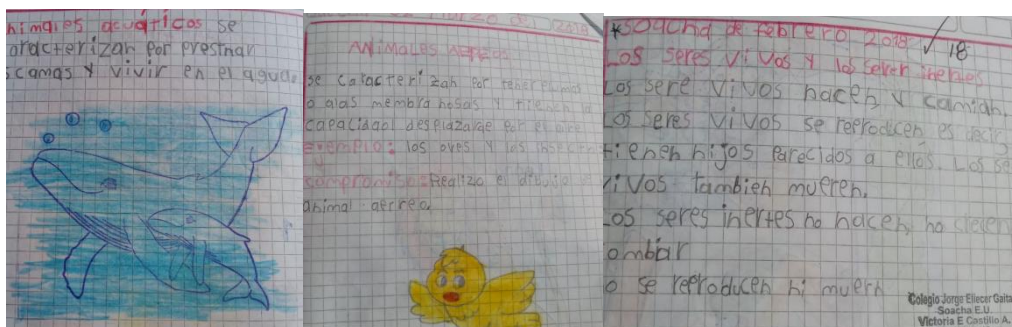 himales acuáticos se
aracterizan por prestnar
scamas y vivir en el agua.
marzo de 2018
ANIMALES AEREOS
se caracterizan por tener
o alas membranosas y tienen la
capacidad desplazarse por el aire
Ejemplo: los aves y los insec
y
compromiso: Realizo el dibujo
animal aerreo.
*Soacha de febrero 2018 ✓ 18
Los seres vivos y los seres inertes
Los sere vivos nacen y camian.
Los seres vivos se reproducen es decir
tienen hijos parecidos a ellos. Los se
vivos tambien mueren.
Los seres inertes no nacen, no
ombiar
o se reproducen ni muern
Colegio Jorge Eliecer Gaita
Soacha E.U.
Victoria E Castillo A.